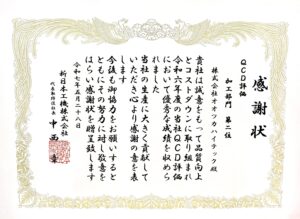 感謝状
QCD評価
加工部門 第二位
株式会社オオツカハイテック殿
貴社は誠意をもって品質向上
とコストダウンに取り組まれ
令和六年度の当社QCD評価
において優秀な成績を収めら
れました
当社の生産に大きく貢献して
いただき心より感謝の意を表
します
今後も御協力をお願いすると
ともにその努力に対し敬意を
はらい感謝状を贈呈致します
令和七年五月二十八日
新日本工機株式会社
代表取締役社長 中西 章